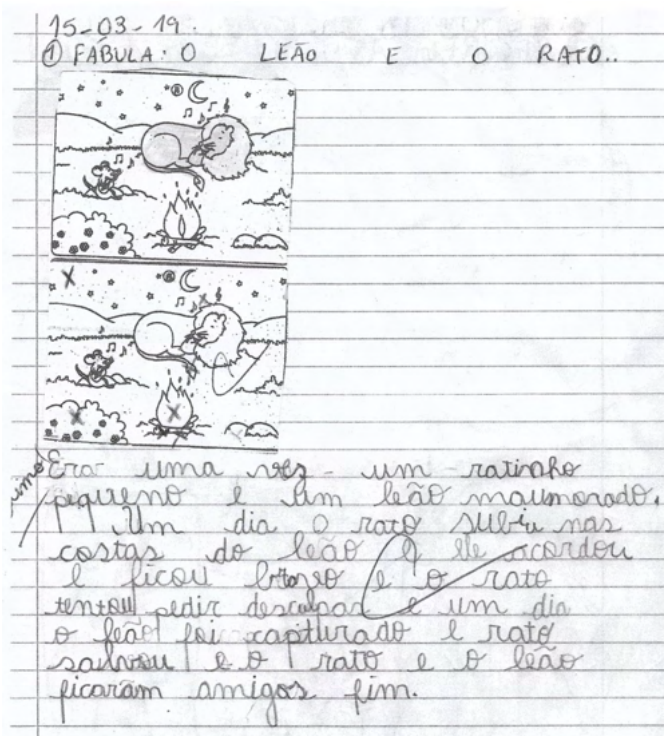 15-03-19.
① FÁBULA: O LEÃO E O RATO..
Era uma vez um ratinho
piqueno e um leão maumorado.
Um dia o rato subiu nas
costas do leão e ele acordou
e ficou bravo e o rato
tentou pedir desculpas e um dia
o leão foi capturado e rato
salvou e o rato e o leão
ficaram amigos fim.